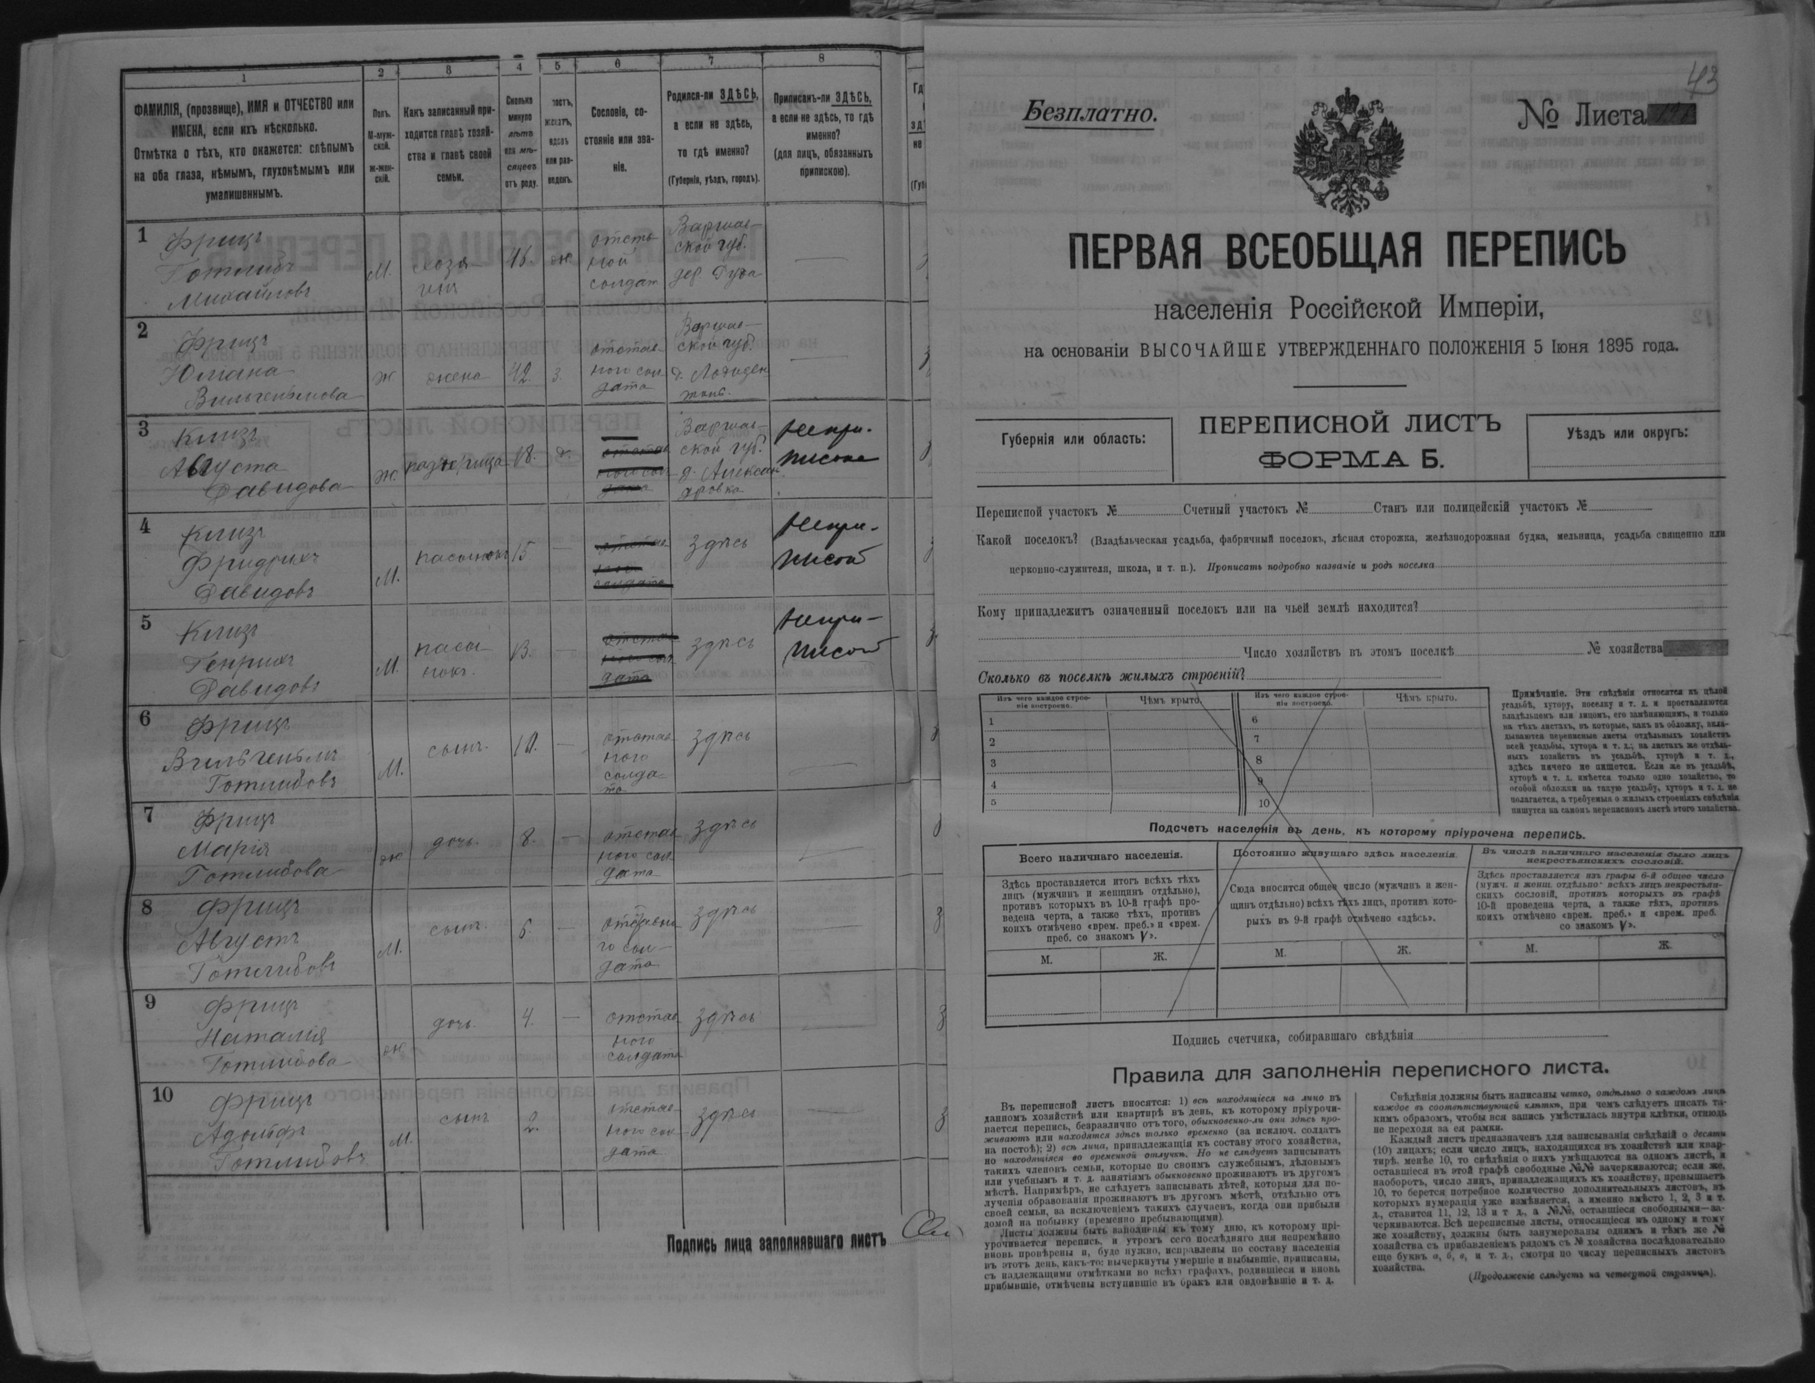 1 2 3 4 5 6 7 8
ФАМИЛІЯ, (прозвище), ИМЯ и ОТЧЕСТВО или
ИМЕНА, если ихъ нѣсколько.
Отмѣтка о тѣхъ, кто окажется: слѣпымъ
на оба глаза, нѣмымъ, глухонѣмымъ или
умалишеннымъ.
Полъ.
М-муж-
ской.
ж-жен-
скій.
Какъ записанный при-
ходится главѣ хозяй-
ства и главѣ своей
семьи.
Сколько
минуло
лѣтъ
или мѣ-
сяцевъ
отъ роду.
Сословіе, со-
стояніе или зва-
ніе.
Родился-ли ЗДѢСЬ,
а если не здѣсь,
то гдѣ именно?
(Губернія, уѣздъ, городъ).
Приписанъ-ли ЗДѢСЬ,
а если не здѣсь, то гдѣ
именно?
(для лицъ, обязанныхъ
припискою).
1
Фрицъ
Готлибъ
Михайловъ
М.
хозя-
инъ
ж
отстав
ной
солдатъ
Варшав-
ской губ.
2
Фрицъ
Юліана
Вильгельмова
ж
жена
42
з.
отстав-
ного сол
дата
Варшав-
ской губ.
3
Клизъ
Августа
Давидова
ж.
падчерица
18.
д.
Варшав-
ской губ.
д. Алексан
дровка
непри-
писана
4
Клизъ
Фридрихъ
Давидовъ
М.
пасынокъ
15
—
здѣсь
непри-
писанъ
5
Клизъ
Генрихъ
Давидовъ
М.
пасы-
нокъ.
13.
—
здѣсь
непри-
писанъ
6
Фрицъ
Вильгельмъ
Готлибовъ
М.
сынъ.
10.
—
отстав
ного
солда-
та
здѣсь
7
Фрицъ
Марія
Готлибова
ж
дочь.
8.
—
отстав
ного сол
дата
здѣсь
8
Фрицъ
Августъ
Готлибовъ
М.
сынъ.
6.
—
отставно
го сол-
дата
здѣсь
9
Фрицъ
Наталія
Готлибова
ж
дочь.
4.
—
отстав
ного
солдата
здѣсь
10
Фрицъ
Адольфъ
Готлибовъ
М.
сынъ
2.
отстав-
ного сол
дата
здѣсь
Подпись лица заполнявшаго листъ
43
Безплатно.
№ Листа
ПЕРВАЯ ВСЕОБЩАЯ ПЕРЕПИСЬ
населенія Россійской Имперіи,
на основаніи ВЫСОЧАЙШЕ УТВЕРЖДЕННАГО ПОЛОЖЕНІЯ 5 Іюня 1895 года.
Губернія или область:
ПЕРЕПИСНОЙ ЛИСТЪ
ФОРМА Б.
Уѣздъ или округъ:
Переписной участокъ № Счетный участокъ № Станъ или полицейскій участокъ №
Какой поселокъ? (Владѣльческая усадьба, фабричный поселокъ, лѣсная сторожка, желѣзнодорожная будка, мельница, усадьба священно или
церковно-служителя, школа, и т. п.). Прописать подробно названіе и родъ поселка
Кому принадлежитъ означенный поселокъ или на чьей землѣ находится?
Число хозяйствъ въ этомъ поселкѣ № хозяйства
Сколько въ поселкѣ жилыхъ строеній?
Изъ чего каждое строе-
ніе построено.
Чѣмъ крыто.
Изъ чего каждое строе-
ніе построено.
Чѣмъ крыто.
1 6
2 7
3 8
4 9
5 10
Примѣчаніе. Эти свѣдѣнія относятся къ цѣлой
усадьбѣ, хутору, поселку и т. д. и проставляются
владѣльцемъ или лицомъ, его замѣняющимъ, и только
на тѣхъ листахъ, въ которые, какъ въ обложку, вкла-
дываются переписные листы отдѣльныхъ хозяйствъ
всей усадьбы, хутора и т. д.; на листахъ же отдѣль-
ныхъ хозяйствъ въ усадьбѣ, хуторѣ и т. д.,
здѣсь ничего не пишется. Если же въ усадьбѣ,
хуторѣ и т. д. имѣется только одно хозяйство, то
особой обложки на такую усадьбу, хуторъ и т. д. не
полагается, а требуемыя о жилыхъ строеніяхъ свѣдѣнія
пишутся на самомъ переписномъ листѣ этого хозяйства.
Подсчетъ населенія въ день, къ которому пріурочена перепись.
Всего наличнаго населенія.
Здѣсь проставляется итогъ всѣхъ тѣхъ
лицъ (мужчинъ и женщинъ отдѣльно),
противъ которыхъ въ 10-й графѣ про-
ведена черта, а также тѣхъ, противъ
коихъ отмѣчено «врем. преб.» и «врем.
преб. со знакомъ V».
Постоянно живущаго здѣсь населенія.
Сюда вносится общее число (мужчинъ и жен-
щинъ отдѣльно) всѣхъ тѣхъ лицъ, противъ кото-
рыхъ въ 9-й графѣ отмѣчено «здѣсь».
Въ числѣ наличнаго населенія было лицъ
некрестьянскихъ сословій.
Здѣсь проставляется изъ графы 6-й общее число
(мужч. и женщ. отдѣльно) всѣхъ лицъ некрестьян-
скихъ сословій, противъ которыхъ въ графѣ
10-й проведена черта, а также тѣхъ, противъ
коихъ отмѣчено «врем. преб.» и «врем. преб.
со знакомъ V».
М. Ж. М. Ж. М. Ж.
Подпись счетчика, собиравшаго свѣдѣнія
Правила для заполненія переписного листа.
Въ переписной листъ вносятся: 1) всѣ находящіеся на лицо въ
данномъ хозяйствѣ или квартирѣ въ день, къ которому пріурочи-
вается перепись, безразлично отъ того, обыкновенно-ли они здѣсь про-
живаютъ или находятся здѣсь только временно (за исключ. солдатъ
на постоѣ); 2) всѣ лица, принадлежащія къ составу этого хозяйства,
но находящіеся во временной отлучкѣ. Но не слѣдуетъ записывать
такихъ членовъ семьи, которые по своимъ служебнымъ, дѣловымъ
или учебнымъ и т. д. занятіямъ обыкновенно проживаютъ въ другомъ
мѣстѣ. Напримѣръ, не слѣдуетъ записывать дѣтей, которыя для по-
лученія образованія проживаютъ въ другомъ мѣстѣ, отдѣльно отъ
своей семьи, за исключеніемъ такихъ случаевъ, когда они прибыли
домой на побывку (временно пребывающими).
Листы должны быть наводимы къ тому дню, къ которому прі-
урочивается перепись, и утромъ сего послѣдняго дня непремѣнно
вновь провѣрены и, буде нужно, исправлены по составу населенія
въ этотъ день, какъ-то: вычеркнуты умершіе и выбывшіе, приписаны,
съ надлежащими отмѣтками во всѣхъ графахъ, родившіеся и вновь
прибывшіе, отмѣчены вступившіе въ бракъ или овдовѣвшіе и т. д.
Свѣдѣнія должны быть написаны четко, отдѣльно о каждомъ лицѣ
каждое въ соотвѣтствующей клѣткѣ, при чемъ слѣдуетъ писать та-
кимъ образомъ, чтобы вся запись умѣстилась внутри клѣтки, отнюдь
не переходя за ея рамки.
Каждый листъ предназначенъ для записыванія свѣдѣній о десяти
(10) лицахъ; если число лицъ, находящихся въ хозяйствѣ или квар-
тирѣ, менѣе 10, то свѣдѣнія о нихъ умѣщаются на одномъ листѣ, и
оставшіеся въ этой графѣ свободные №№ зачеркиваются; если же,
наоборотъ, число лицъ, принадлежащихъ къ хозяйству, превышаетъ
10, то берется потребное количество дополнительныхъ листовъ, въ
которыхъ нумерація уже измѣняется, а именно вмѣсто 1, 2, 3 и т.
д., ставится 11, 12, 13 и т. д., а №№, оставшіеся свободными—за-
черкиваются. Всѣ переписные листы, относящіеся къ одному и тому
же хозяйству, должны быть занумерованы однимъ и тѣмъ же №
хозяйства съ прибавленіемъ рядомъ съ № хозяйства послѣдовательно
еще буквъ а, б, в, и т. д., смотря по числу переписныхъ листовъ
хозяйства.
(Продолженіе слѣдуетъ на четвертой страницѣ).